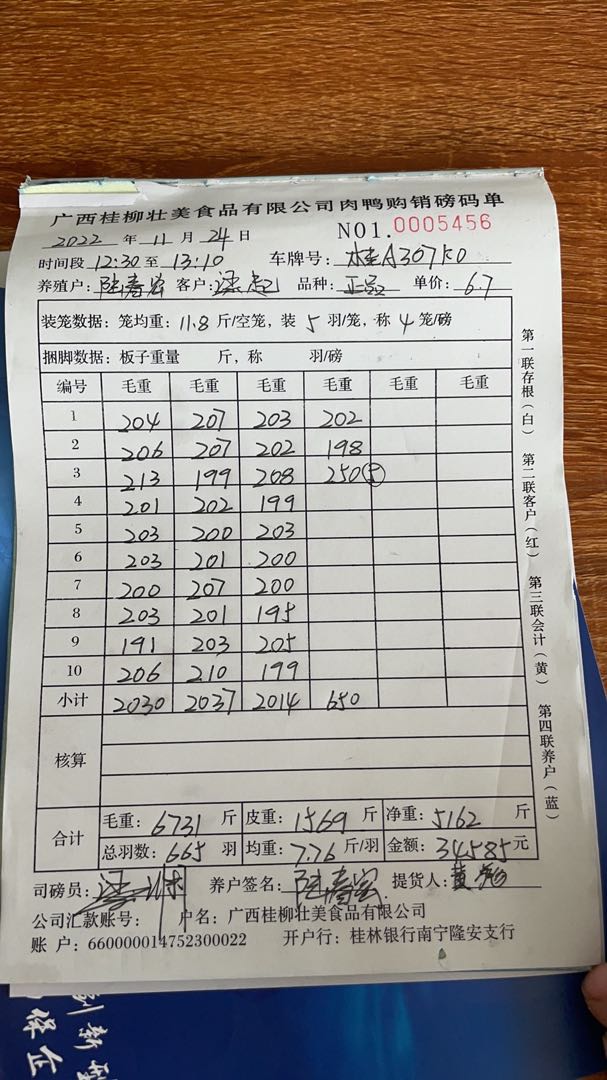 广西桂柳壮美食品有限公司肉鸭购销磅码单
2022 年 11 月 24 日 NO1. 0005456
时间段 12:30 至 13:10 车牌号: 桂A307K0
养殖户: 客户: 品种: 单价: 6.7
装笼数据: 笼均重: 11.8 斤/空笼, 装 5 羽/笼, 称 4 笼/磅
捆脚数据: 板子重量 斤, 称 羽/磅
编号 毛重 毛重 毛重 毛重 毛重 毛重
1 204 207 203 202
2 206 207 202 198
3 213 199 208 250 5
4 201 202 199
5 203 200 203
6 203 201 200
7 200 207 200
8 203 201 195
9 191 203 205
10 206 210 199
小计 2030 2037 2014 650
核算
合计
毛重: 6731 斤 皮重: 1569 斤 净重: 5162 斤
总羽数: 665 羽 均重: 7.76 斤/羽 金额: 34585 元
司磅员: 养户签名: 提货人:
公司汇款账号: 户名: 广西桂柳壮美食品有限公司
账 户: 660000014752300022 开户行: 桂林银行南宁隆安支行
第一联存根(白) 第二联客户(红) 第三联会计(黄) 第四联养户(蓝)